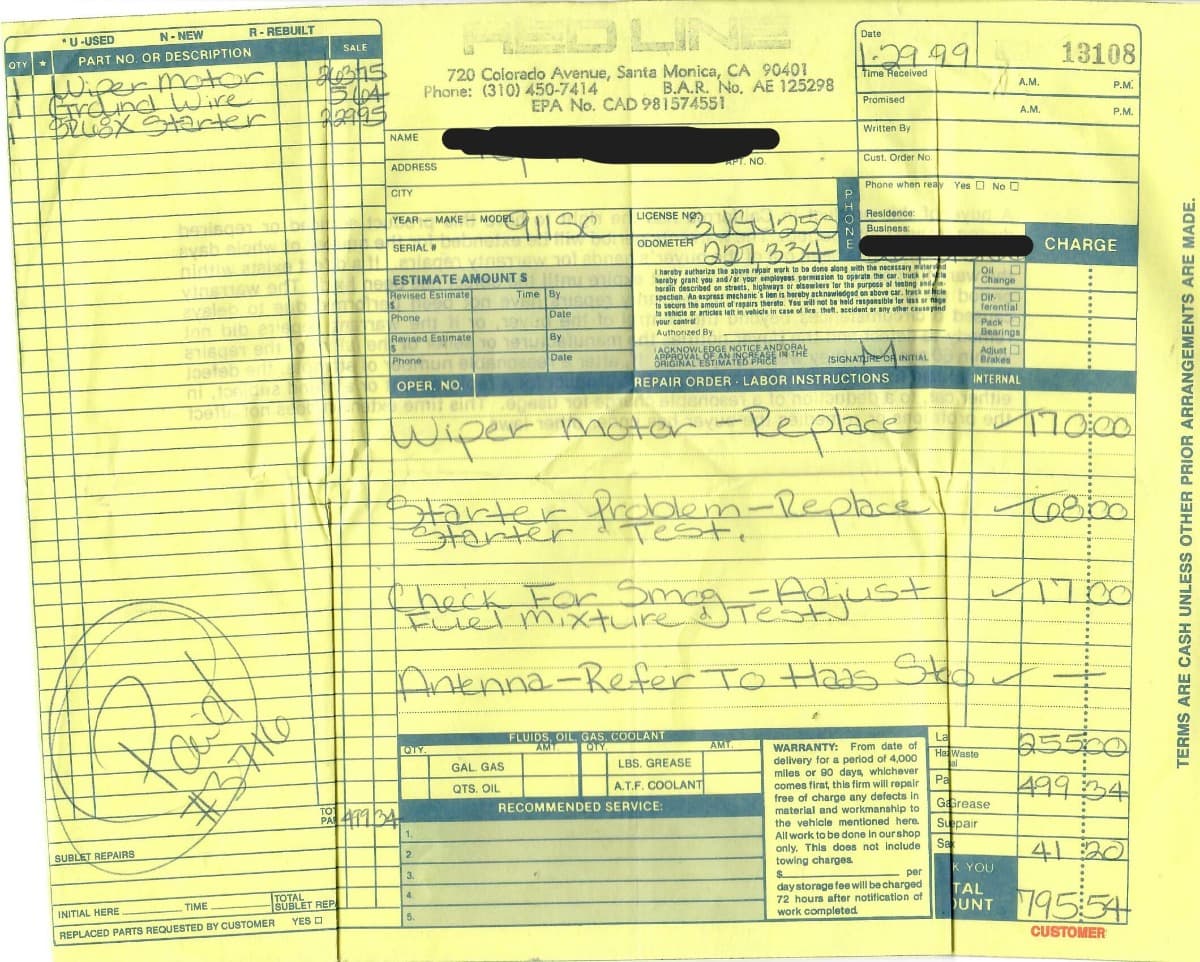 * U -USED N - NEW R - REBUILT
QTY * PART NO. OR DESCRIPTION SALE
1 Wiper Motor 263 75
1 Ground Wire 5 64
1 Starter 229 95
RED LINE
720 Colorado Avenue, Santa Monica, CA 90401
Phone: (310) 450-7414 B.A.R. No. AE 125298
EPA No. CAD 981574551
Date
1-29-99
13108
Time Received A.M. P.M.
Promised A.M. P.M.
Written By
Cust. Order No.
Phone when ready Yes No
Residence:
Business:
PHONE
NAME
ADDRESS APT. NO.
CITY
YEAR — MAKE — MODEL 911SC
LICENSE NO. 3UGU250
SERIAL #
ODOMETER 227,334
CHARGE
ESTIMATE AMOUNT $
Revised Estimate Time By
$
Phone Date
Revised Estimate By
$
Phone Date
I hereby authorize the above repair work to be done along with the necessary material and
hereby grant you and/or your employees permission to operate the car, truck or vehicle
herein described on streets, highways or elsewhere for the purpose of testing and/or in-
spection. An express mechanic's lien is hereby acknowledged on above car, truck or vehicle
to secure the amount of repairs thereto. You will not be held responsible for loss or damage
to vehicle or articles left in vehicle in case of fire, theft, accident or any other cause beyond
your control.
Authorized By
I ACKNOWLEDGE NOTICE AND ORAL
APPROVAL OF AN INCREASE IN THE
ORIGINAL ESTIMATED PRICE
(SIGNATURE OR INITIAL
Oil Change
Dif-ferential
Pack Bearings
Adjust Brakes
OPER. NO. REPAIR ORDER - LABOR INSTRUCTIONS INTERNAL
Wiper Motor - Replace 170 00
Starter Problem - Replace 68 00
Starter & Test.
Check For Smog - Adjust 17 00
Fuel Mixture & Test.
Antenna - Refer To Haas Steo —
Paid
#3746
FLUIDS, OIL, GAS, COOLANT
QTY. AMT. QTY. AMT.
GAL. GAS LBS. GREASE
QTS. OIL A.T.F. COOLANT
RECOMMENDED SERVICE:
1.
2.
3.
4.
5.
WARRANTY: From date of
delivery for a period of 4,000
miles or 90 days, whichever
comes first, this firm will repair
free of charge any defects in
material and workmanship to
the vehicle mentioned here.
All work to be done in our shop
only. This does not include
towing charges.
$ per
day storage fee will be charged
72 hours after notification of
work completed.
La 255 00
Haz Waste
Pa 499 34
Grease
Su epair
Sa 41 20
K YOU
TAL
OUNT 795 54
CUSTOMER
TOT
PA 499 34
SUBLET REPAIRS
INITIAL HERE TIME
TOTAL
SUBLET REP
REPLACED PARTS REQUESTED BY CUSTOMER YES
TERMS ARE CASH UNLESS OTHER PRIOR ARRANGEMENTS ARE MADE.